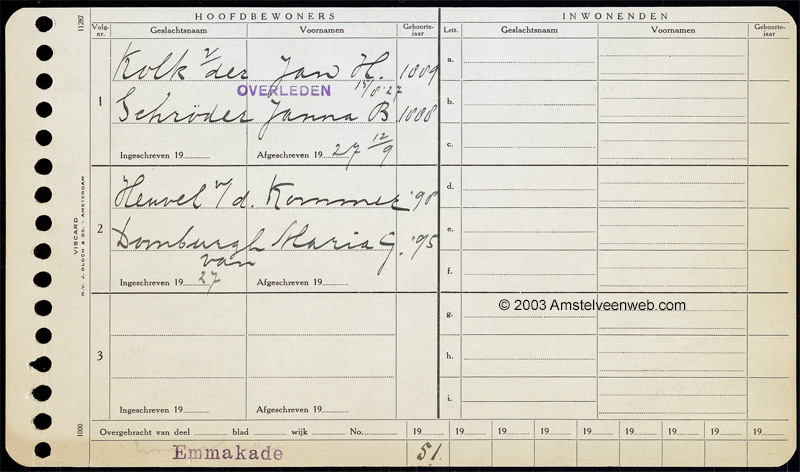 HOOFDBEWONERS INWONENDEN
Volg-nr. Geslachtsnaam Voornamen Geboorte-jaar Lett. Geslachtsnaam Voornamen Geboorte-jaar
11287
1
Kolk v/der Jan H.
OVERLEDEN 17/8 '27
Schröder Janna B
Ingeschreven 19 Afgeschreven 19 27 12/9
2
Heuvel v/d. Kommer '98
Domburgh Maria G. '95
van
Ingeschreven 19 27 Afgeschreven 19
3
Ingeschreven 19 Afgeschreven 19
a.
b.
c.
d.
e.
f.
g.
h.
i.
© 2003 Amstelveenweb.com
VISCARD
N.V. J. BLOCH & CO. - AMSTERDAM
1000
Overgebracht van deel blad wijk No. 19 19 19 19 19 19 19 19 19
Emmakade 51